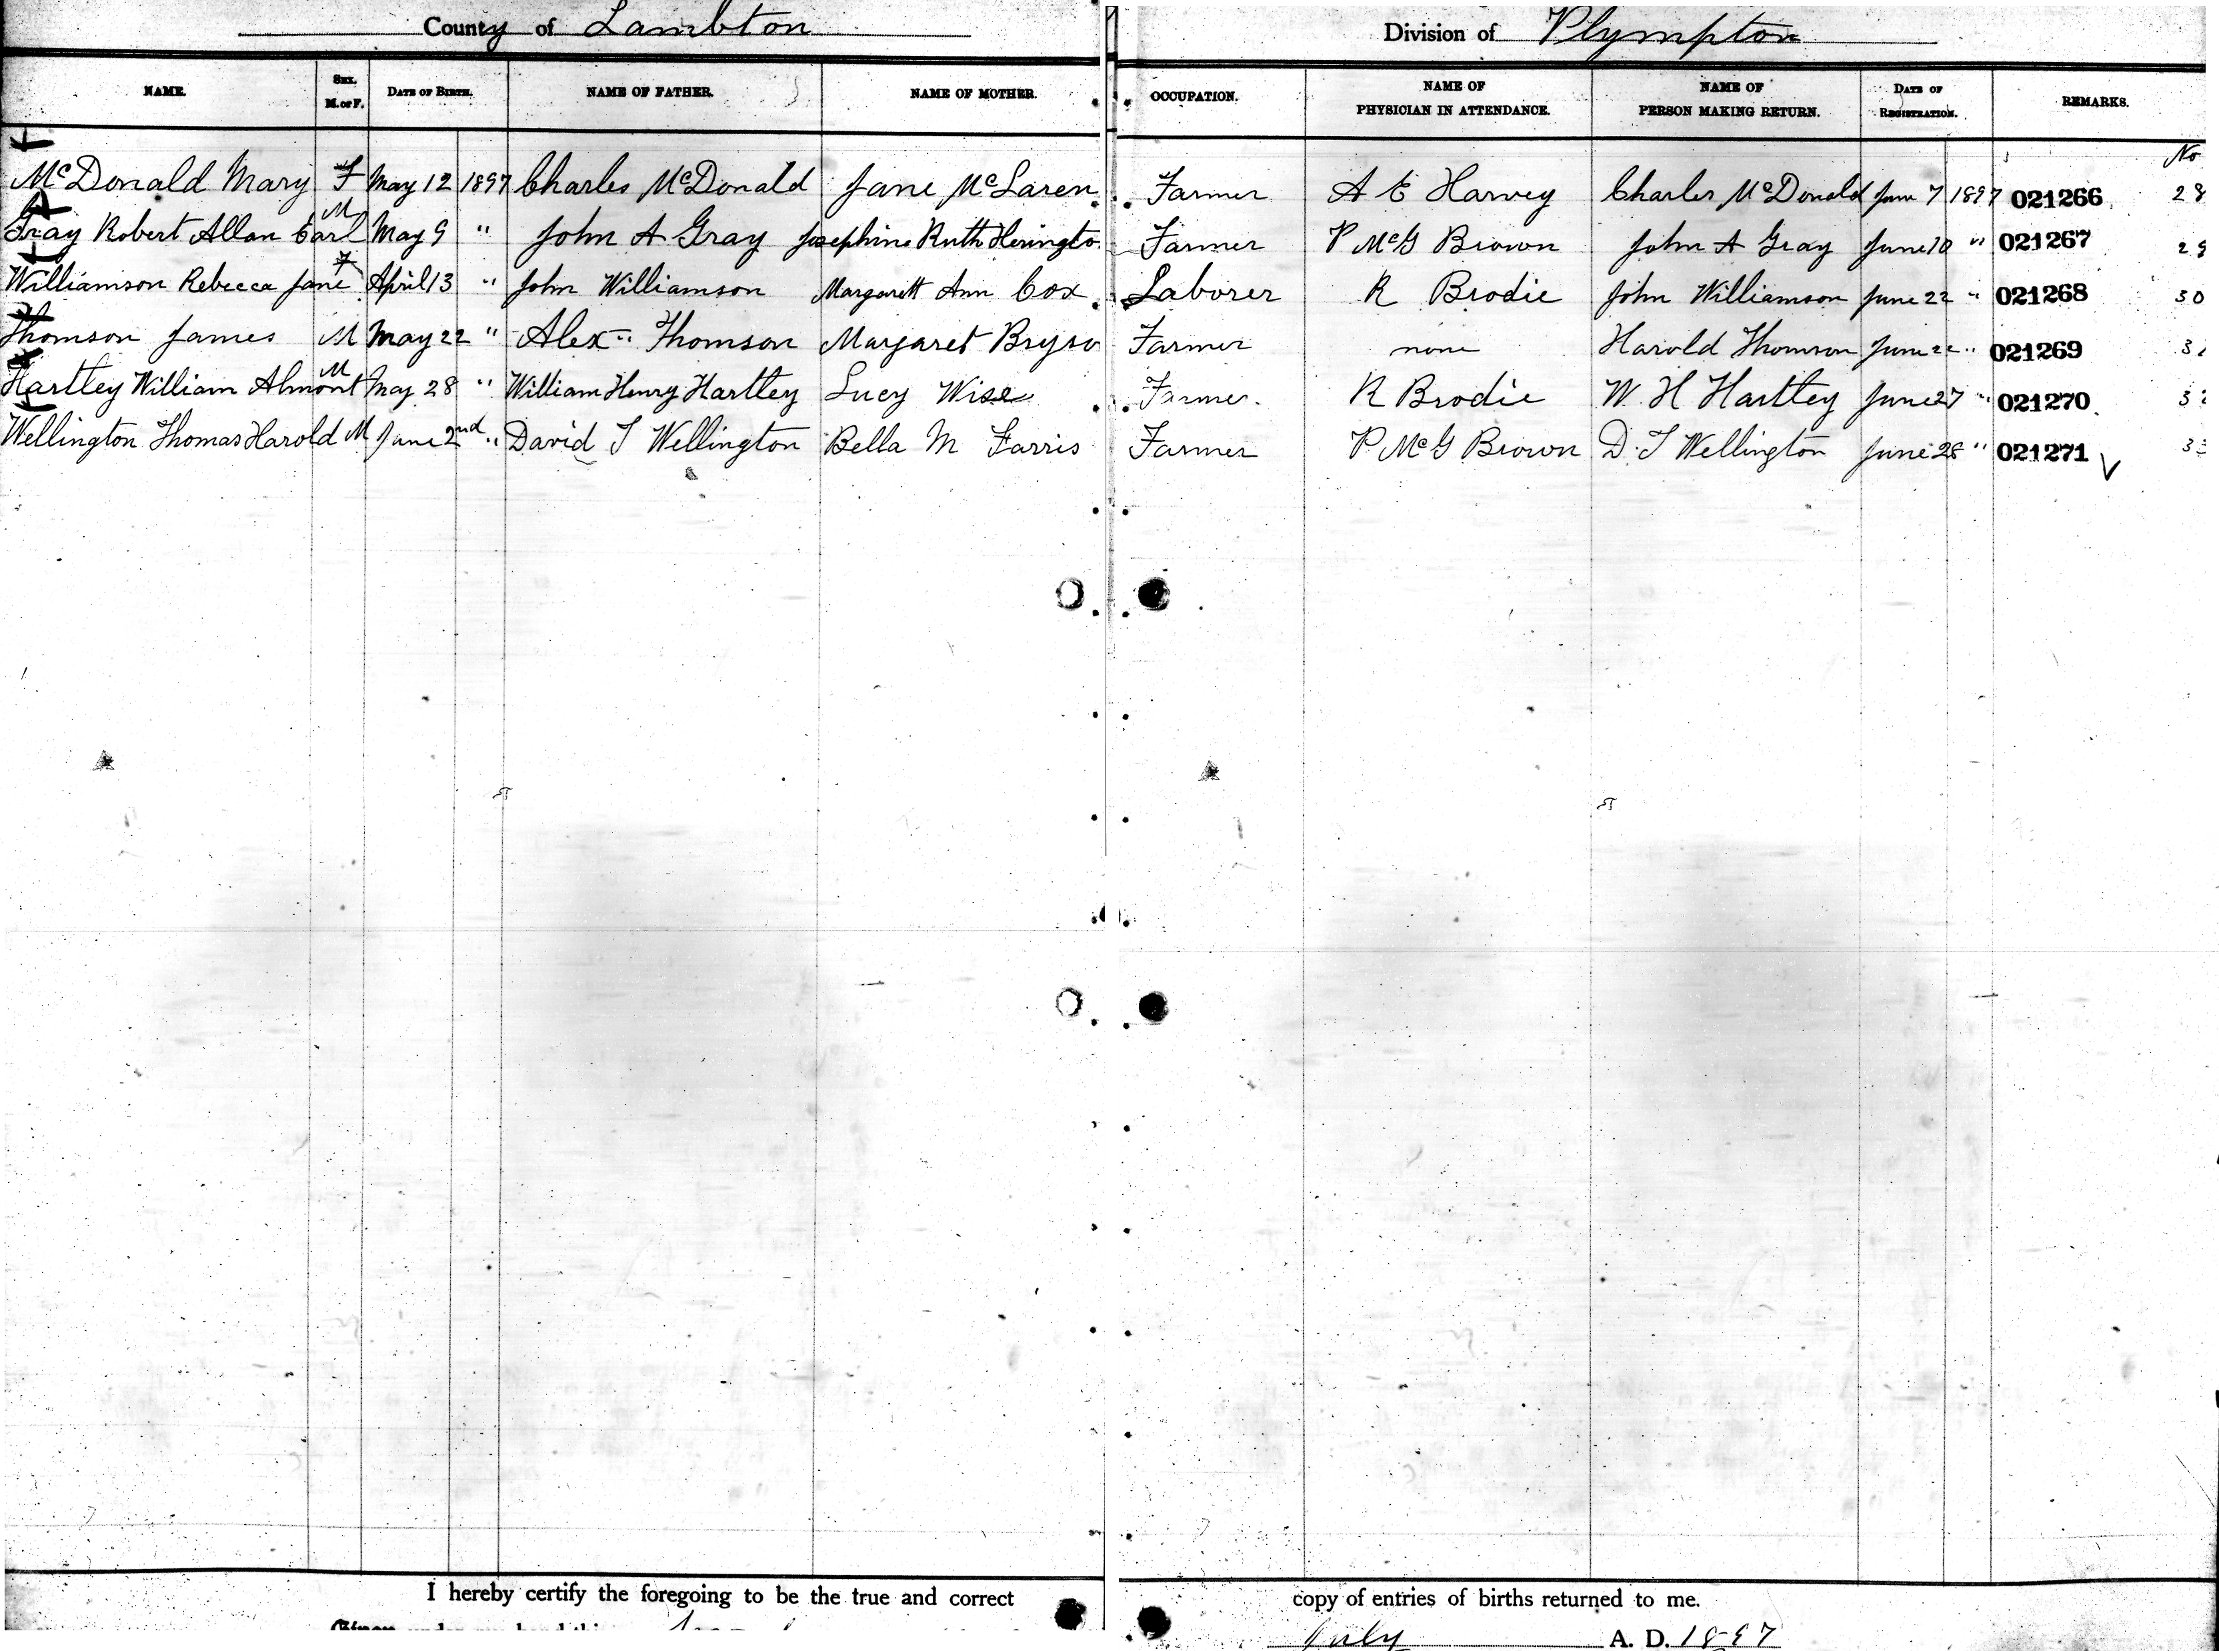 County of Lambton Division of Plympton
NAME. SEX. M. or F. DATE OF BIRTH. NAME OF FATHER. NAME OF MOTHER. OCCUPATION. NAME OF PHYSICIAN IN ATTENDANCE. NAME OF PERSON MAKING RETURN. DATE OF REGISTRATION. REMARKS.
No
McDonald Mary F May 12 1897 Charles McDonald Jane McLaren Farmer A E Harvey Charles McDonald June 7 1897 021266 28
Gray Robert Allan Carl M May 9 " John A Gray Josephine Ruth Herington Farmer P McG Brown John A Gray June 10 " 021267 29
Williamson Rebecca Jane F April 13 " John Williamson Margarett Ann Cox Laborer R Brodie John Williamson June 22 " 021268 30
Thomson James M May 22 " Alex " Thomson Margaret Bryso Farmer none Harold Thomson June 22 " 021269 31
Hartley William Almont M May 28 " William Henry Hartley Lucy Wise Farmer. R Brodie W. H Hartley June 27 " 021270 32
Wellington Thomas Harold M June 2nd " David T Wellington Bella M Farris Farmer P McG Brown D. T Wellington June 28 " 021271 33
I hereby certify the foregoing to be the true and correct copy of entries of births returned to me.
Given July A. D. 1897